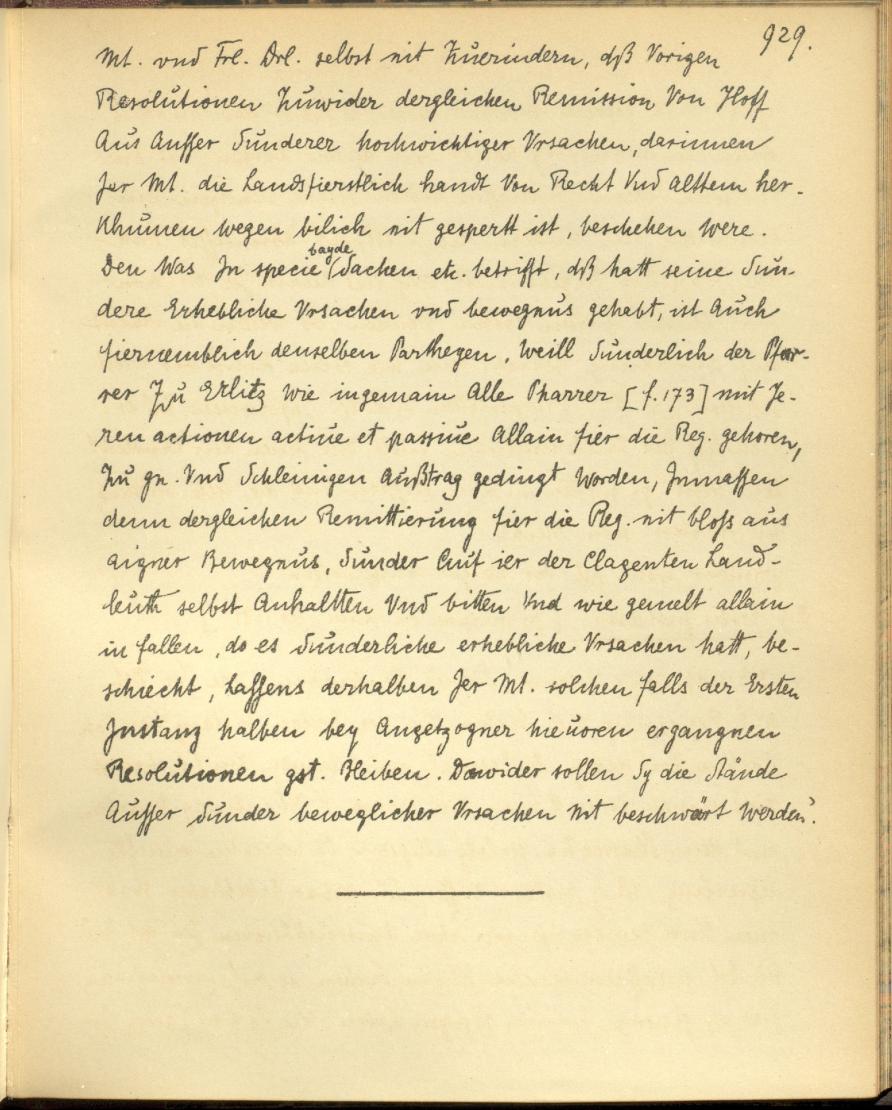 929.
Mt. vnd Frl. Drl. selbst nit Zuerindern, dß Vorigen
Resolutionen Zuwider dergleichen Remission Von Hoff
Aus Ausser Sunderer hochwichtiger Vrsachen, darinnen
Jer Mt. die Landsfierstlich handt Von Recht Vnd Alttem her-
Khumen wegen bilich nit gespertt ist, beschehen were.
Den Was Jn specie bayde Sachen etc. betrifft, dß hatt seine Sun-
dere Erhebliche Vrsachen vnd bewegnus gehabt, ist Auch
fiernemblich denselben Partheyen, Weill Sunderlich der Pfar-
rer Zu Erlitz wie ingemain Alle Pharrer [f. 173] mit Je-
ren actionen actiue et passiue Allain fier die Reg. gehoren,
Zu gn. Vnd Schleinigen Außtrag gedingt Worden, Jnmassen
denn dergleichen Remittierung fier die Reg. nit bloss aus
aigner Bewegnus, Sunder Auf ier der Clagenten Land-
leuth selbst Anhaltten Vnd bitten Vnd wie gemelt allain
in fallen, do es Sunderliche erhebliche Vrsachen hatt, be-
schiecht, Lassens derhalben Jer Mt. solchen falls der Ersten
Jnstanz halben bey Angetzogner hieuoren ergangnen
Resolutionen gst. Bleiben. Dawider sollen Sy die Stände
Ausser Sunder beweglicher Vrsachen Nit beschwärt Werden.